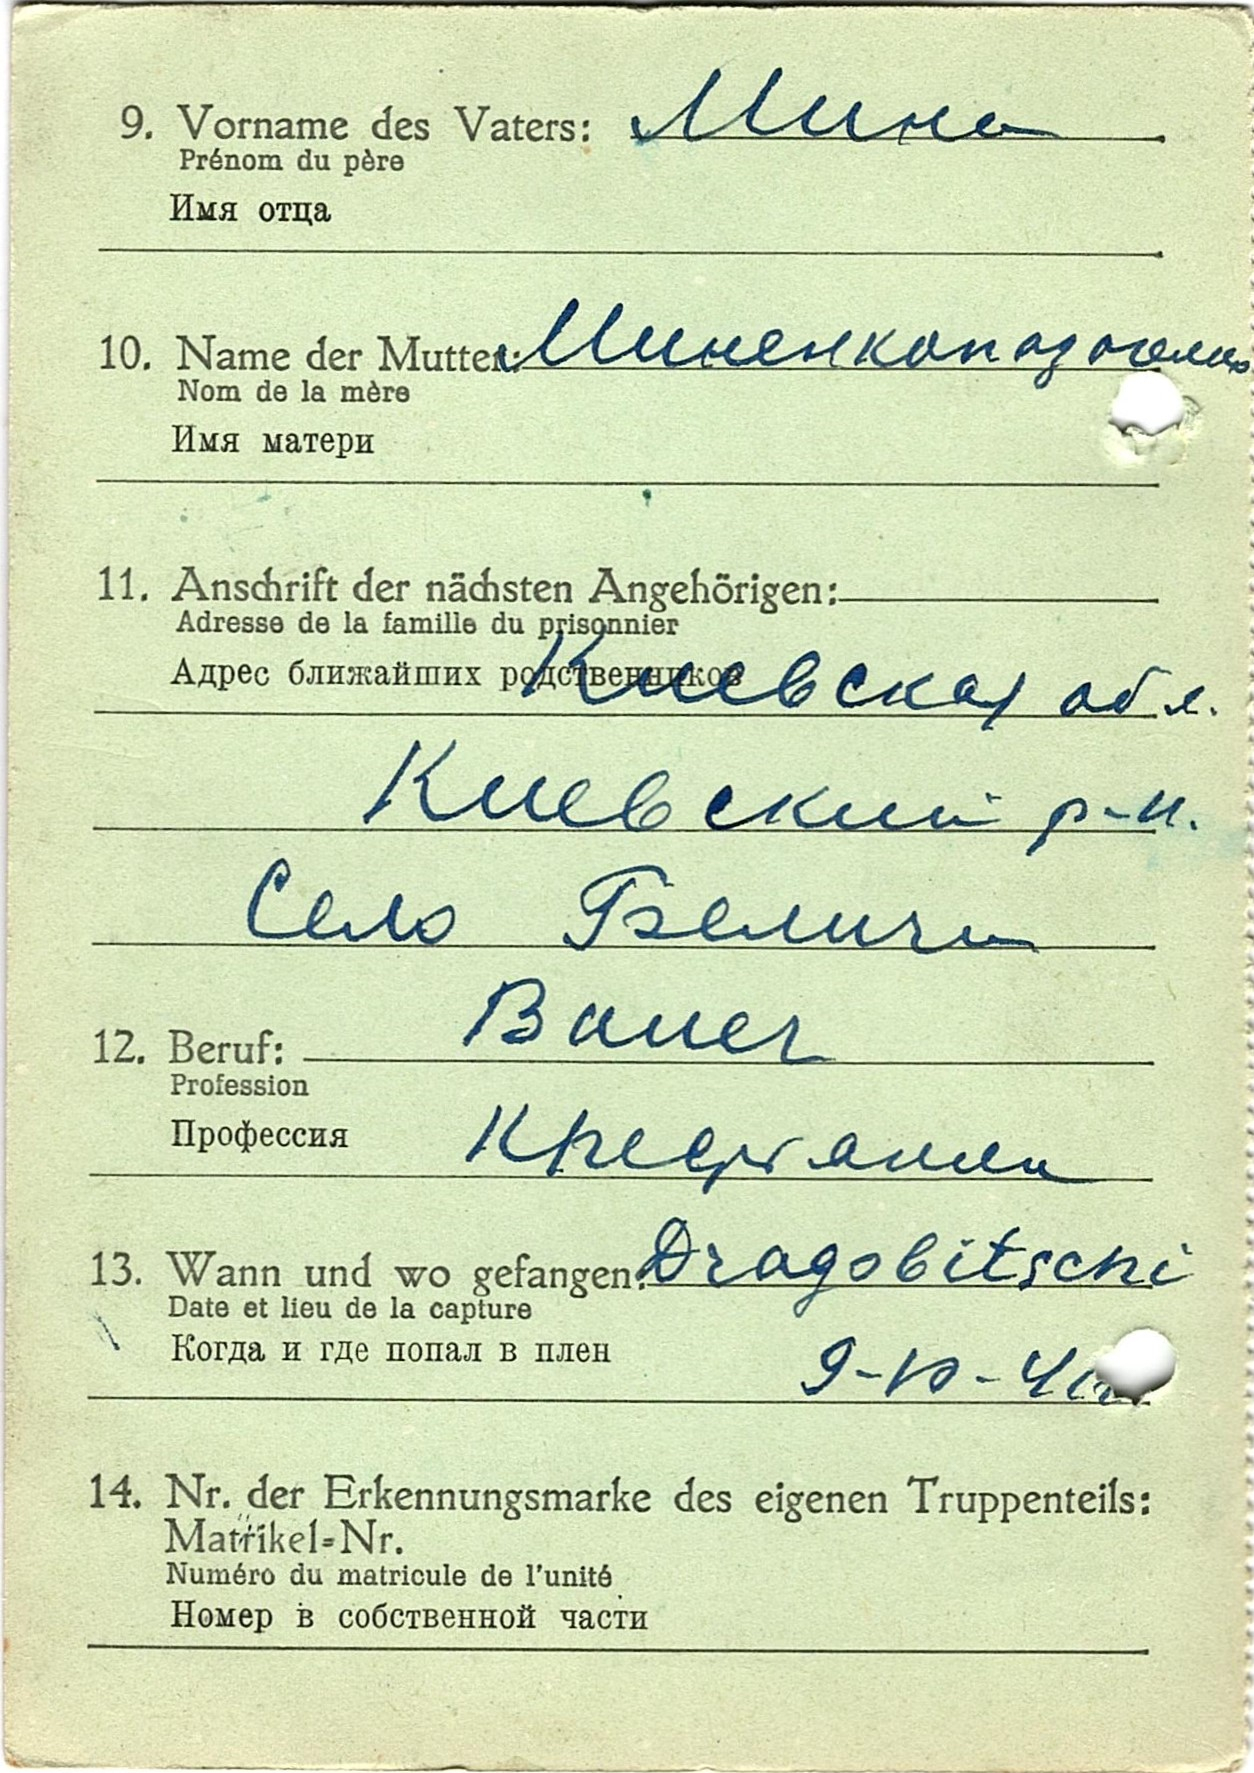 9. Vorname des Vaters: Мина
Prénom du père
Имя отца
10. Name der Mutter:
Nom de la mère
Имя матери
11. Anschrift der nächsten Angehörigen:
Adresse de la famille du prisonnier
Адрес ближайших родственников
Киевская обл.
Киевский р-н.
Село Беличи
12. Beruf: Bauer
Profession
Профессия
13. Wann und wo gefangen: Dragobitschi
Date et lieu de la capture
Когда и где попал в плен
14. Nr. der Erkennungsmarke des eigenen Truppenteils:
Matrikel=Nr.
Numéro du matricule de l'unité
Номер в собственной части